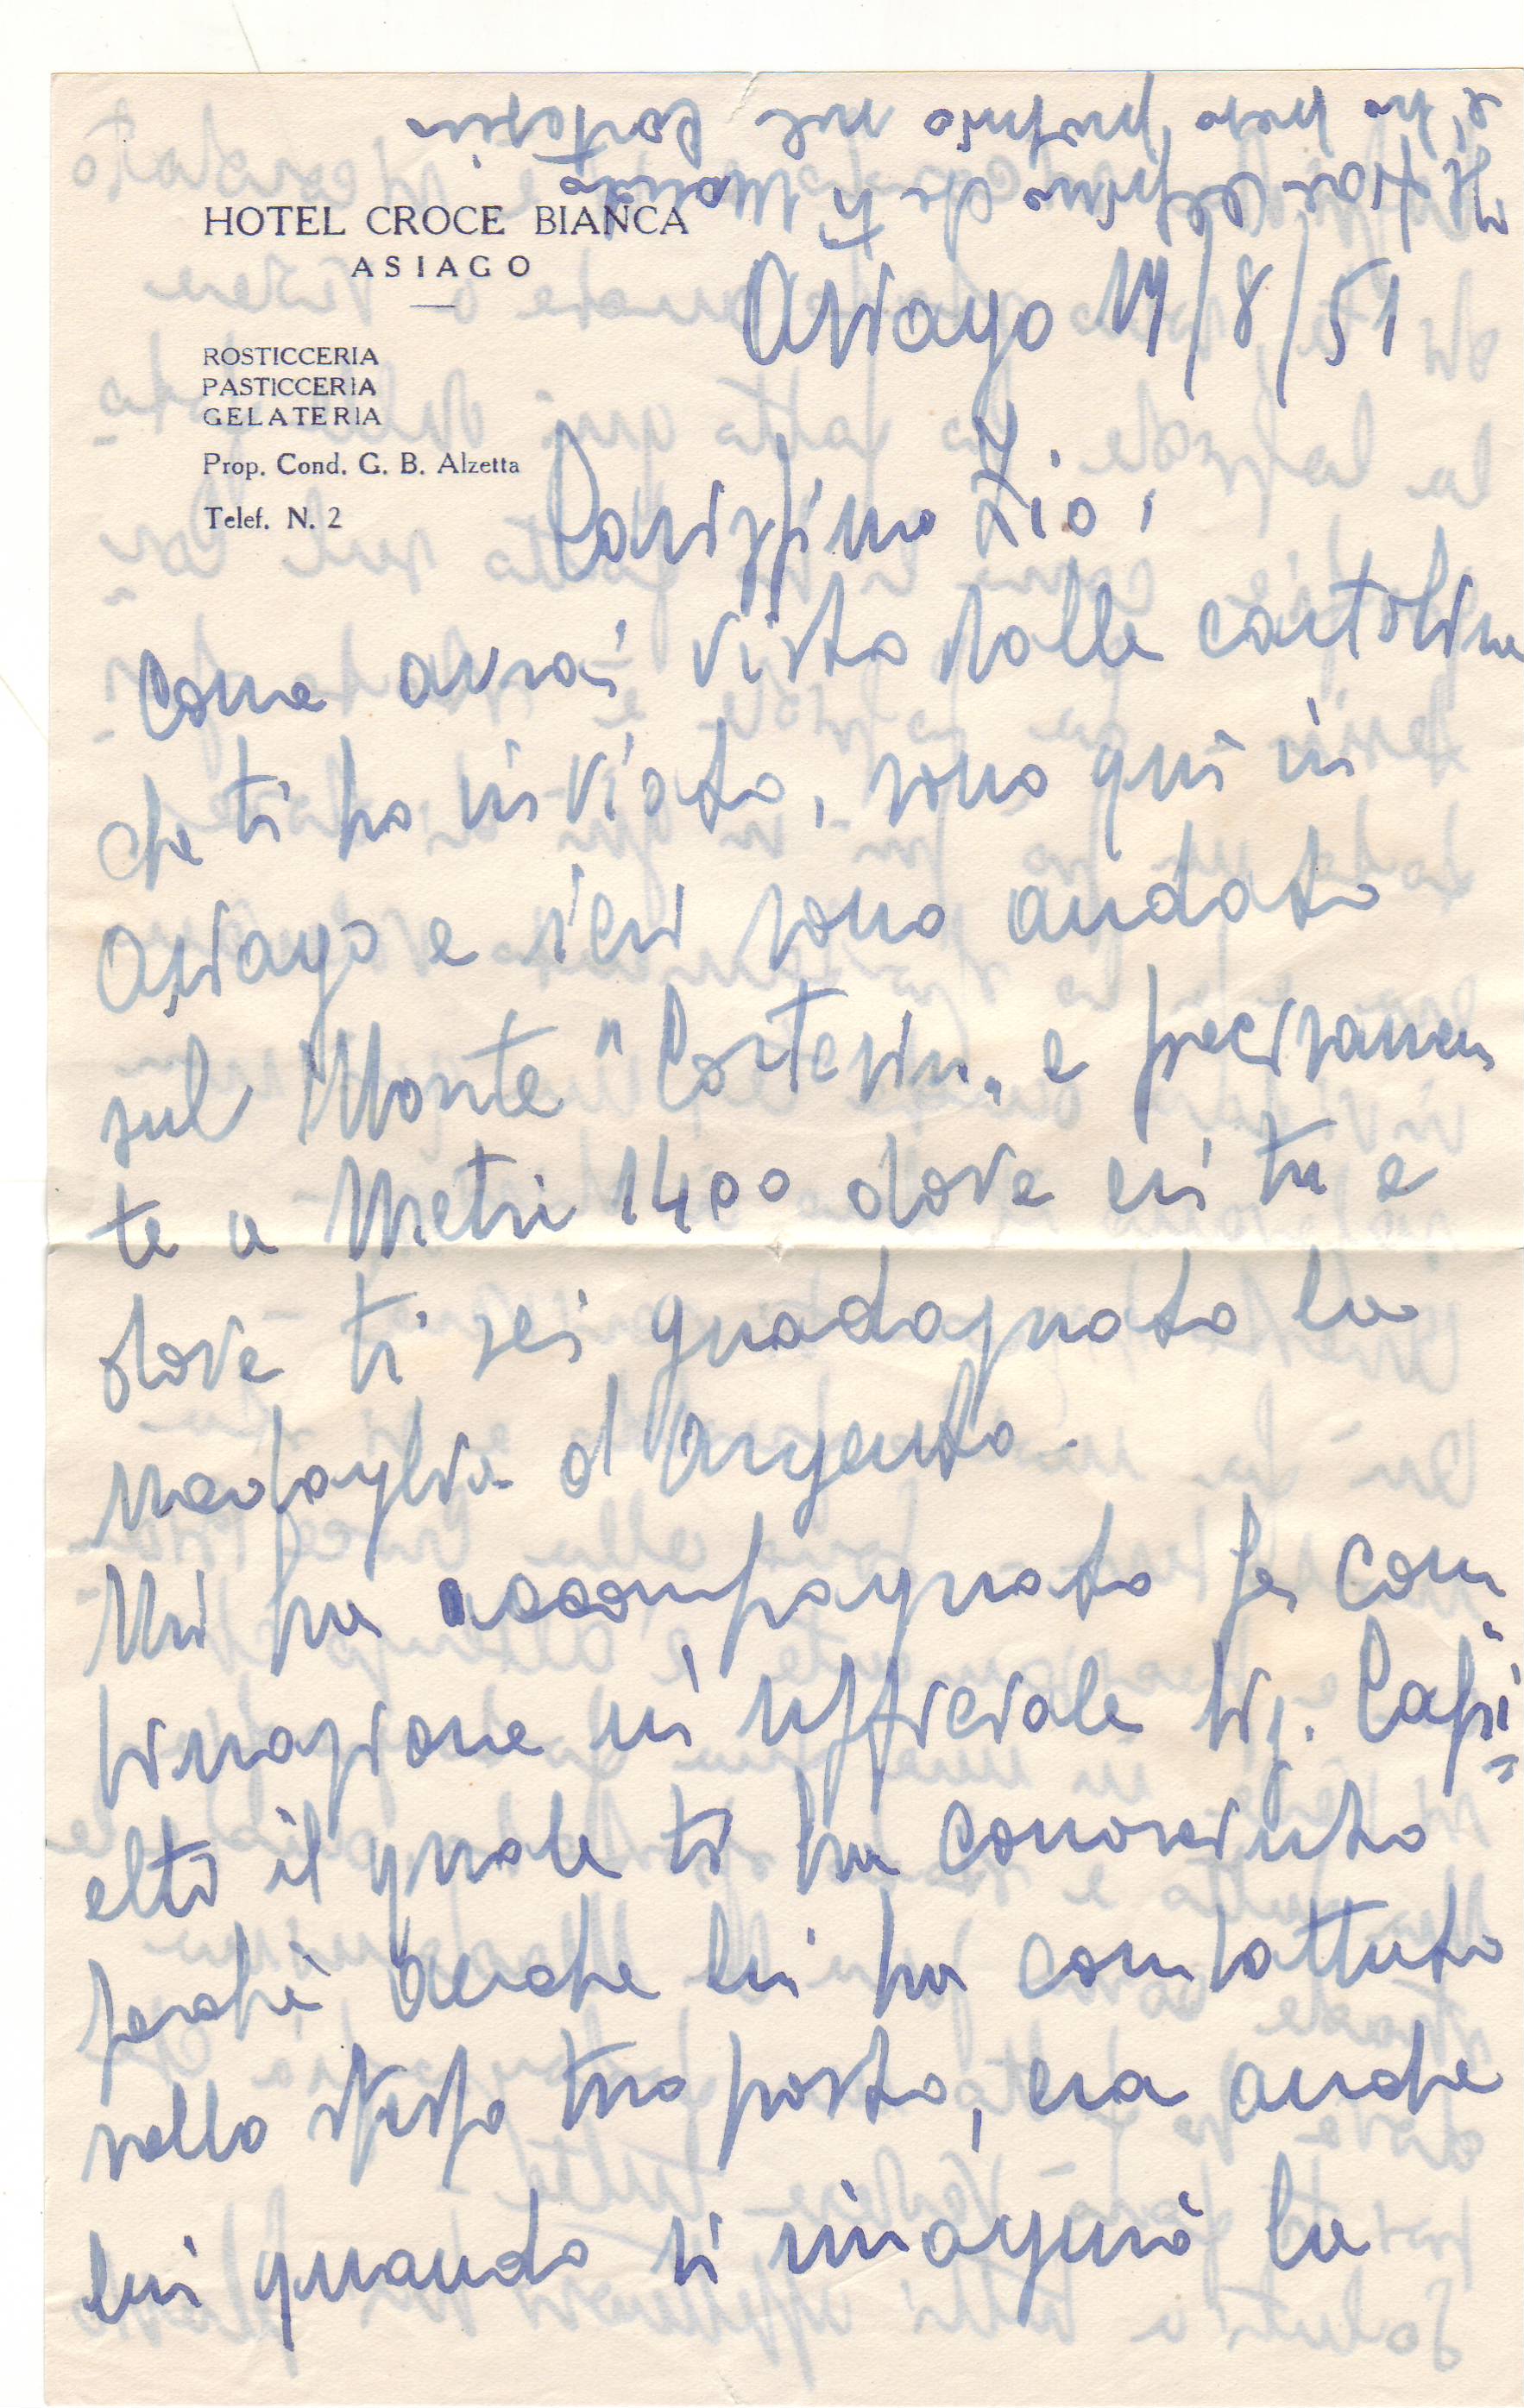 HOTEL CROCE BIANCA
ASIAGO
ROSTICCERIA
PASTICCERIA
GELATERIA
Prop. Cond. G. B. Alzetta
Telef. N. 2
Asiago 14/8/51
Carissimo Zio,
Come avrai visto dalle cartoline
che ti ho inviato, sono qui in
Asiago e ieri sono andato
sul Monte "Cortesin" e precisamen
te a Metri 1400 dove eri tu e
dove ti sei guadagnato la
medaglia d'Argento.
Mi ha accompagnato per com
binazione un ufficiale Sig. Capi=
elto il quale ti ha conosciuto
perchè anche lui ha combattuto
nello stesso tuo posto, era anche
lui quando si inaugurò la
che ti mando
è preso proprio nel Cortesin